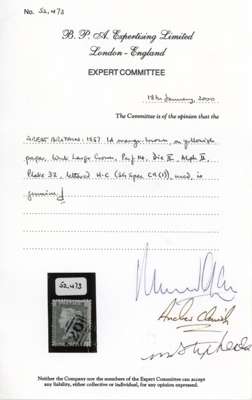 No. 52,473
B. P. A. Expertising Limited
London - England
EXPERT COMMITTEE
18th January, 2000
The Committee is of the opinion that the
GREAT BRITAIN: 1857 1d orange-brown, on yellowish
paper, Wmk Large Crown, Perf 14, Die II, Alph II,
Plate 32, lettered H-C (SG Spec C9(1)), used, is
genuine
52,473
Neither the Company nor the members of the Expert Committee can accept
any liability, either collective or individual, for any opinion expressed.